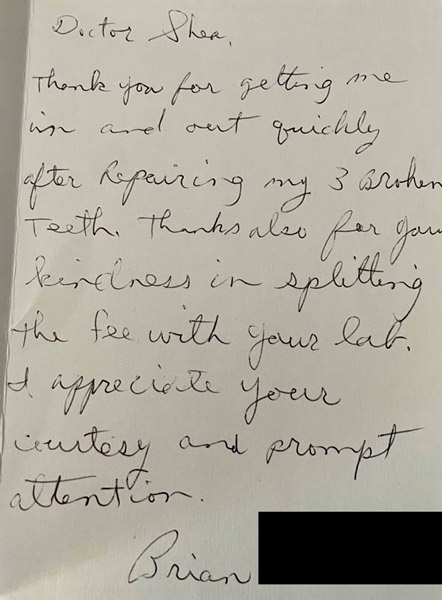 Doctor Shea,
Thank you for getting me
in and out quickly
after Repairing my 3 Broken
Teeth. Thanks also for your
kindness in splitting
the fee with your lab.
I appreciate your
courtesy and prompt
attention.
Brian